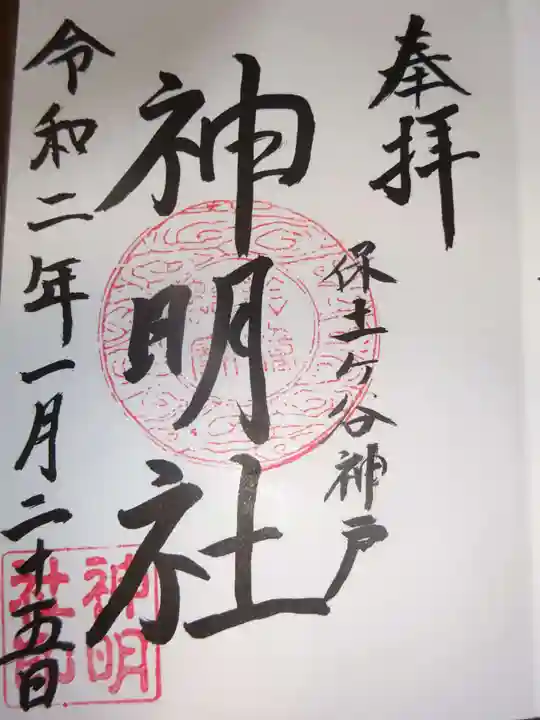 奉拝
保土ヶ谷神戸
神明社
令和二年一月二十五日
神明